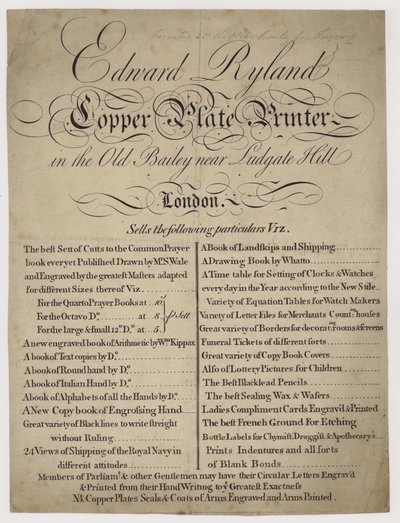 Edward Ryland
Copper Plate Printer
in the Old Bailey near Ludgate Hill
London.
Sells the following particulars Viz.
The best Sett of Cutts to the Common Prayer
book ever yet Published Drawn by Mr. S. Wale
and Engraved by the greatest Masters adapted
for different Sizes thereof Viz
For the Quarto Prayer Books at
For the Octavo Do. at 8.
For the large & small 12o. Do. at 5.
A new engraved book of Arithmetic by Wm. Kippax
A book of Text copies by Do.
A book of Round hand by Do.
A book of Italian Hand by Do.
A book of Alphabets of all the Hands by Do.
A New Copy book of Engrossing Hand
Great variety of Black lines to write streight
without Ruling
24 Views of Shipping of the Royal Navy in
different attitudes
A Book of Landskips and Shipping
A Drawing Book by Whatto
A Time table for Setting of Clocks & Watches
every day in the Year according to the New Stile
Variety of Equation Tables for Watch Makers
Variety of Letter Files for Merchants Compting houses
Great variety of Borders for decorating rooms & screens
Funeral Tickets of different sorts
Great variety of Copy Book Covers
Also of Lottery Pictures for Children
The Best Blacklead Pencils
The best Sealing Wax & Wafers
Ladies Compliment Cards Engrav'd & Printed
The best French Ground For Etching
Bottle Labels for Chymist Droggist & Apothecary's
Prints Indentures and all sorts
of Blank Bonds
Members of Parliamt. & other Gentlemen may have their Circular Letters Engrav'd
& Printed from their Hand Writing to ye Greatest Exactness
NB. Copper Plates Seals & Coats of Arms Engraved and Arms Painted.